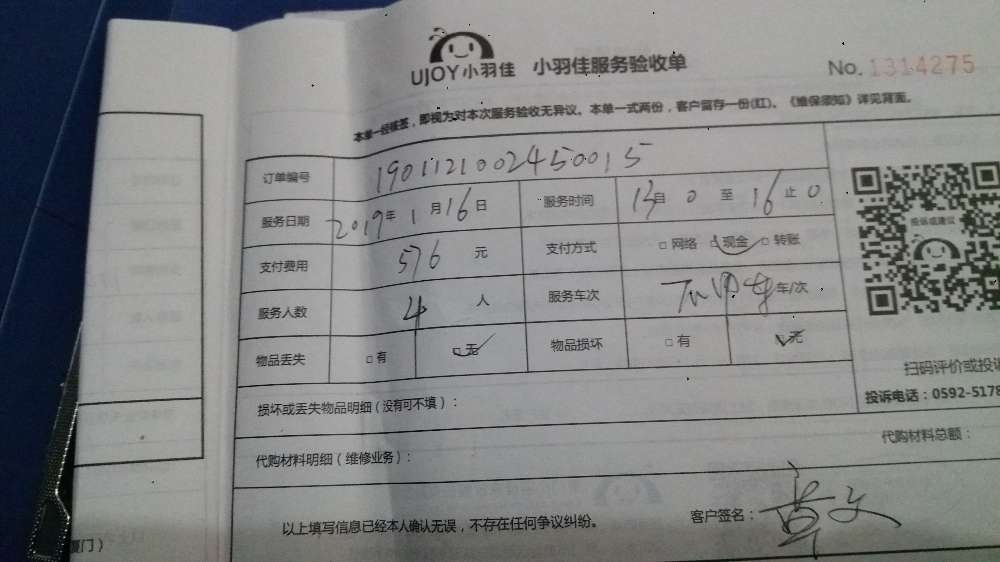 UJOY小羽佳 小羽佳服务验收单 No. 1314275
本单一经核签，即视为对本次服务验收无异议。本单一式两份，客户留存一份(红)。《维保须知》详见背面。
订单编号 1901121002450015
服务日期 2019年1月16日 服务时间 13自0至16止0
支付费用 576元 支付方式 □网络 □现金 □转账
投诉或建议
服务人数 4人 服务车次 车/次
物品丢失 □有 □无 物品损坏 □有 □无
扫码评价或投诉
损坏或丢失物品明细（没有可不填）：
投诉电话：0592-5178
代购材料明细（维修业务）： 代购材料总额：
以上填写信息已经本人确认无误，不存在任何争议纠纷。 客户签名：
厦门）